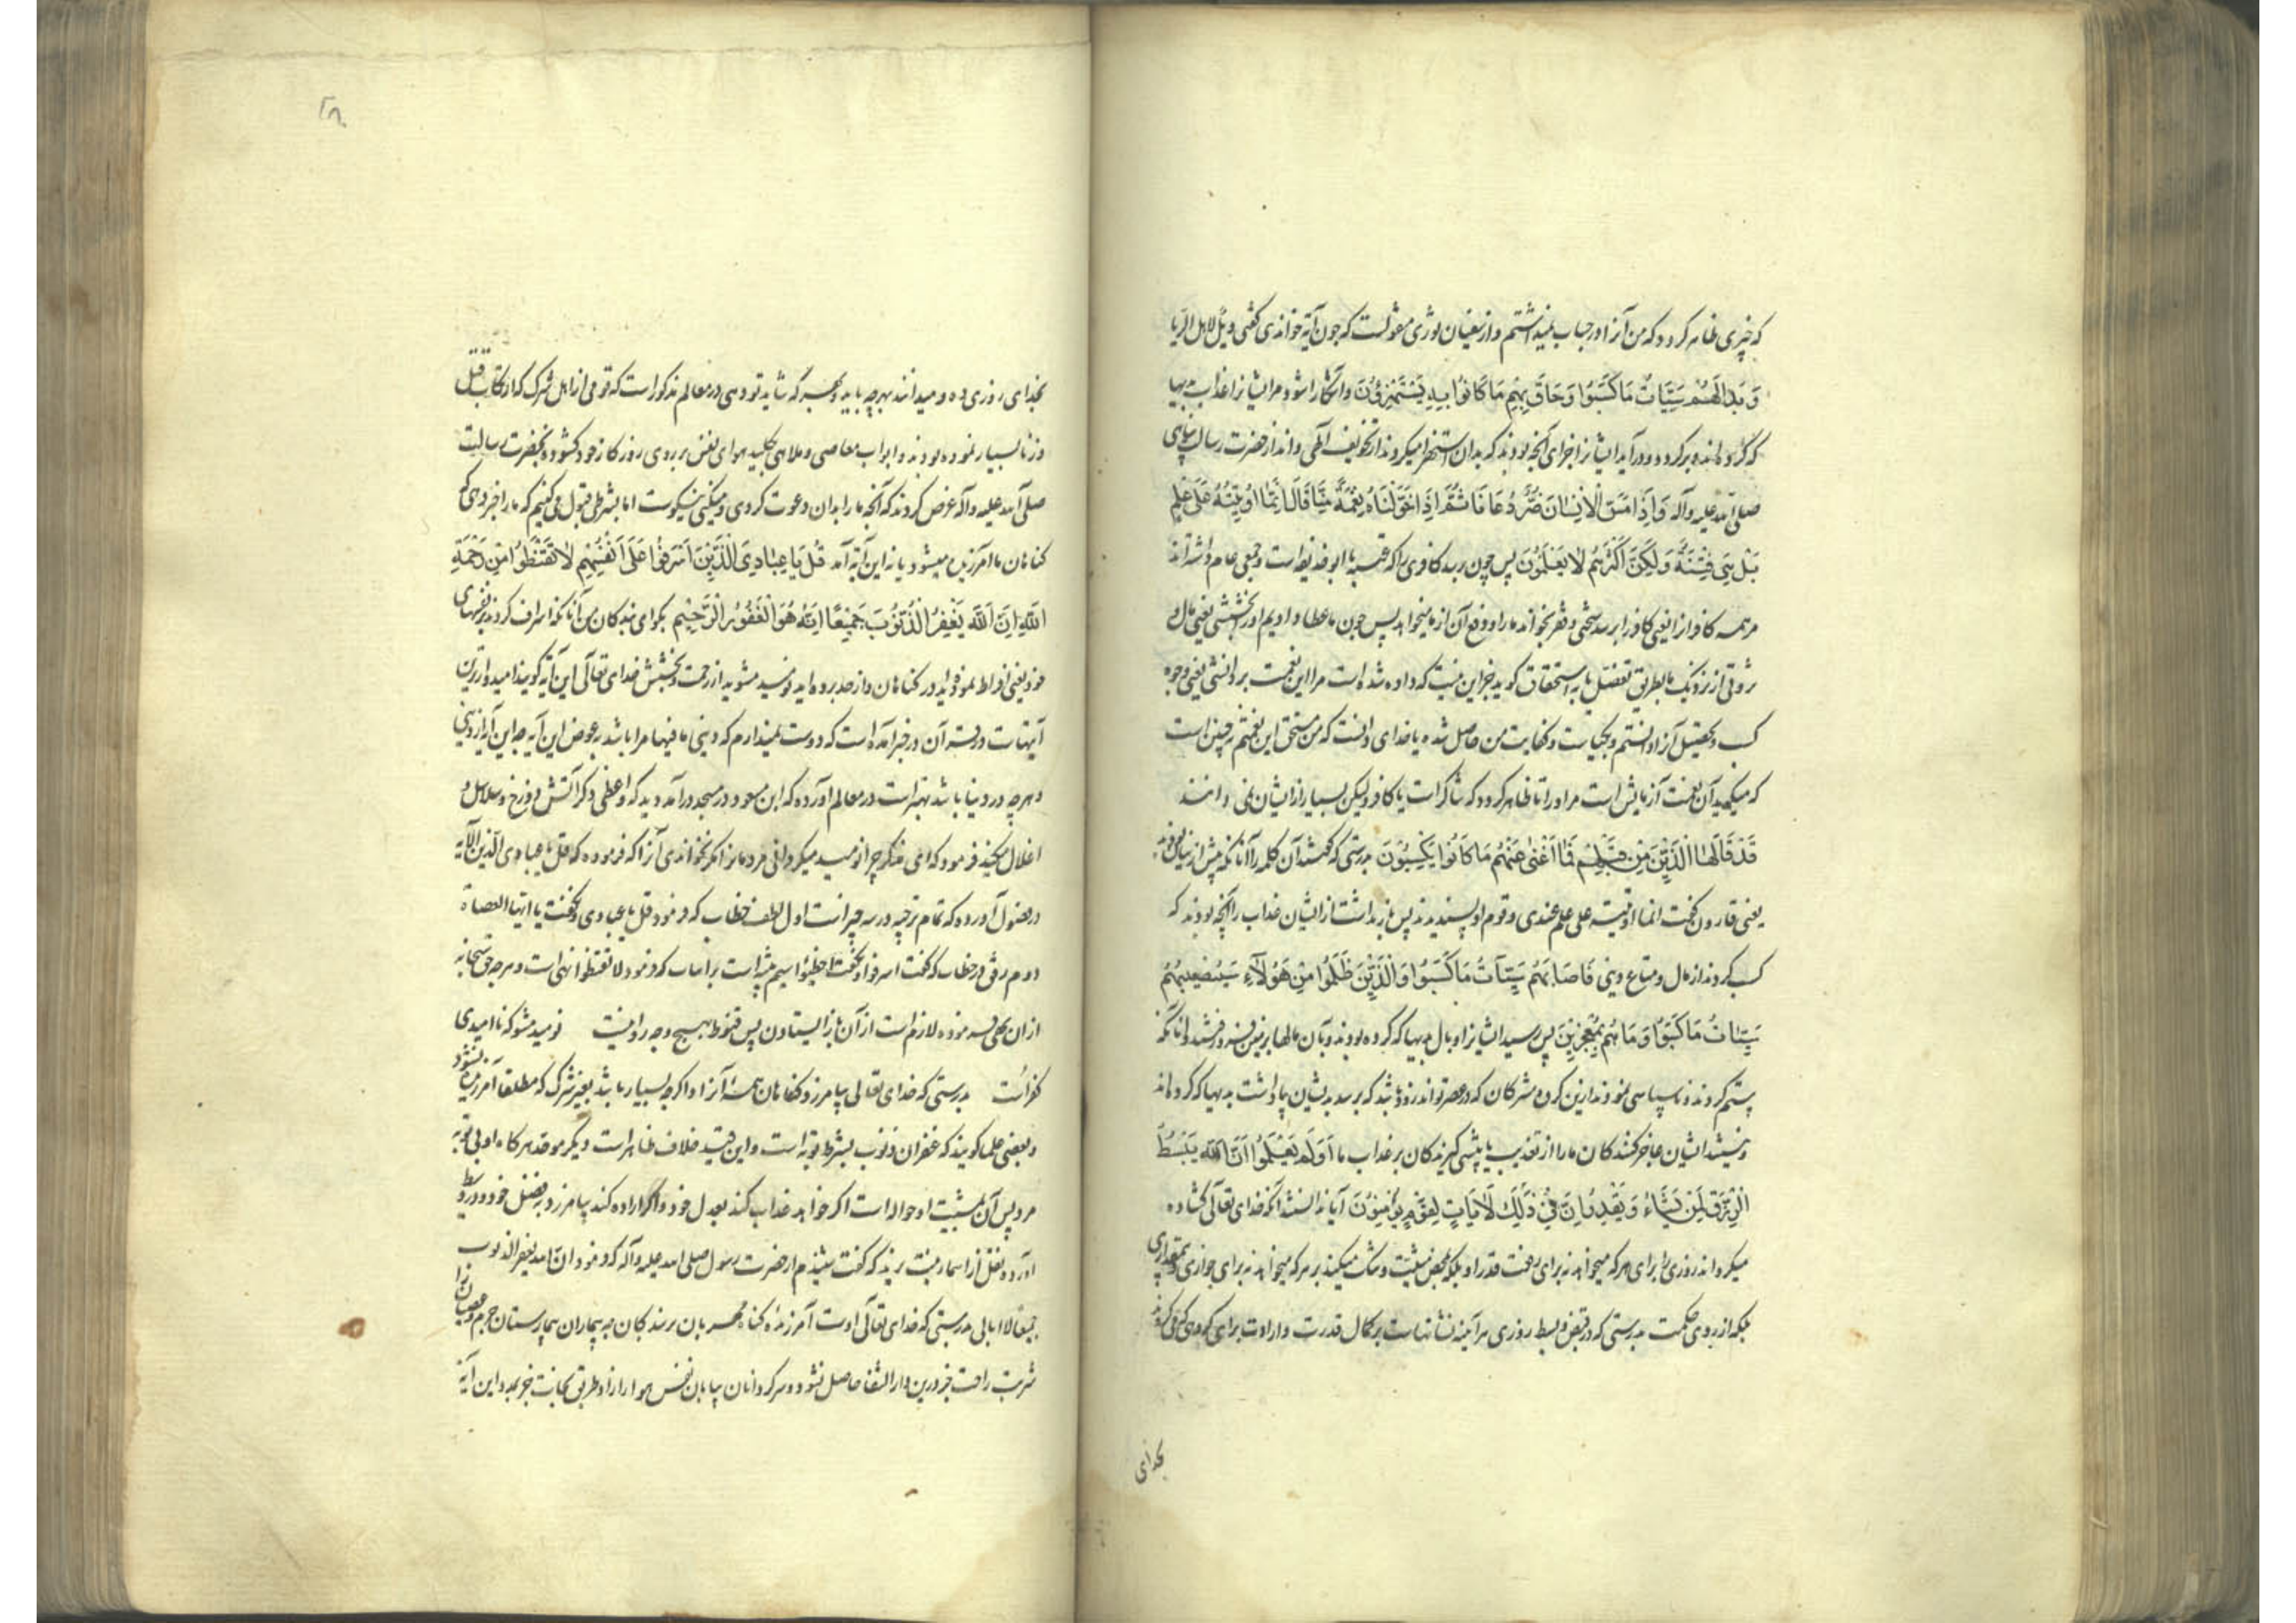 که چیزی ظاهر کردد که من آنرا در حساب نمیداشتم و از سفیان ثوری منقولست که چون این آیه خواندی کفتی ویل لاهل الریا
وَ بَدَا لَهُمْ سَيِّئَاتُ مَا كَسَبُوا وَحَاقَ بِهِمْ مَا كَانُوا بِهِ يَسْتَهْزِؤُنَ و آشکارا شود مر ایشانرا عذاب بدیها
که کرده اند و بر کردد و در آید ایشانرا جزای آنچه بودند که بدان استهزا میکردند از تخویف الهی و انذار حضرت رسالت پناهی
صلی الله علیه وآله وَ اِذَا مَسَّ الْاِنْسَانَ ضُرٌّ دَعَانَا ثُمَّ اِذَا خَوَّلْنَاهُ نِعْمَةً مِنَّا قَالَ اِنَّمَا اُوتِيتُهُ عَلَى عِلْمٍ
بَلْ هِيَ فِتْنَةٌ وَلَكِنَّ اَكْثَرَهُمْ لَا يَعْلَمُونَ پس چون رسد کافری را که عتبه یا ابو حذیفه است و جمعی عام داشته اند
مر همه کافرانرا یعنی کافر را برسد سختی و فقر بخواند ما را و دفع آن از ما میخواهد پس چون ما عطا دادیم او را بخششی یعنی مال و
ثروتی از نزدیک ما بطریق تفضل نه باستحقاق کوید جز این نیست که داده شده است مرا این نعمت بر دانشی یعنی وجوه
کسب و تحصیل آنرا دانستم و بکیاست و کفایت من حاصل شده یا خدای دانست که من مستحق این نعمتم نه چنین است
که میکوید آن نعمت آزمایش است مر او را تا ظاهر کردد که شاکر است یا کافر ولیکن بسیار از ایشان نمی دانند
قَدْ قَالَهَا الَّذِينَ مِنْ قَبْلِهِمْ فَمَا اَغْنَى عَنْهُمْ مَا كَانُوا يَكْسِبُونَ بدرستی که کفتند آن کلمه را آنانکه پیش از ایشان بودند
یعنی قارون کفت انما اوتیته علی علم عندی و قوم او پسندیدند پس باز نداشت از ایشان عذاب را آنچه بودند که
کسب کردند از مال و متاع دنیی فَاَصَابَهُمْ سَيِّئَاتُ مَا كَسَبُوا وَالَّذِينَ ظَلَمُوا مِنْ هَؤُلَاءِ سَيُصِيبُهُمْ
سَيِّئَاتُ مَا كَسَبُوا وَمَا هُمْ بِمُعْجِزِينَ پس رسید ایشانرا وبال بدیها که کرده بودند و بآن مالها بزمین فرو رفتند و آنانکه
ستم کردند و ناسپاسی نمودند ازین کروه مشرکان که در عصر تواند زود باشد که برسد بدیشان پاداشت بدیها که کرده اند
و نیستند ایشان عاجز کنندکان ما را از تعذیب یا پیشی کیرندکان بر عذاب ما اَوَلَمْ يَعْلَمُوا اَنَّ اللّٰهَ يَبْسُطُ
الرِّزْقَ لِمَنْ يَشَاءُ وَ يَقْدِرُ اِنَّ فِي ذَلِكَ لَآيَاتٍ لِقَوْمٍ يُؤْمِنُونَ آیا ندانستند آنکه خدای تعالی کشاده
میکرداند روزی را برای هر که میخواهد نه برای رفعت قدر او بلکه بمحض مشیت و تنک میکند بر هر که میخواهد نه برای خواری و بیمقداری
بلکه از روی حکمت بدرستی که در قبض و بسط روزی هر آینه نشانهاست بر کمال قدرت و ارادت برای کروهی که میکروند
بخدای
۲۸
بخدای روزی ده و میدانند بهر چه باید و بهر که شاید تو دهی در معالم مذکور است که قومی از اهل شرک که ارتکاب قتل
و زنا بسیار نموده بودند و ابواب معاصی و ملاهی بکلید هوای نفس بر روی روزکار خود کشوده بحضرت رسالت
صلی الله علیه وآله عرض کردند که آنچه ما را بدان دعوت کردی و میکنی نیکوست اما بشرطی قبول میکنیم که ما را خبر دهی که
کناهان ما آمرزیده میشود یا نه این آیه آمد قُلْ يَا عِبَادِيَ الَّذِينَ اَسْرَفُوا عَلَى اَنْفُسِهِمْ لَا تَقْنَطُوا مِنْ رَحْمَةِ
اللّٰهِ اِنَّ اللّٰهَ يَغْفِرُ الذُّنُوبَ جَمِيعًا اِنَّهُ هُوَ الْغَفُورُ الرَّحِيمُ بکو ای بندکان من آنانکه اسراف کردند بر نفسهای
خود یعنی افراط نموده اید در کناهان و از حد برده اید نومید مشوید از رحمت و بخشش خدای تعالی این آیه کویند امیدوارترین
آیتهاست در قرآن در خبر آمده است که دوست نمیدارم که دنیی و ما فیها مرا باشد بعوض این آیه چه این آیه از دنیی
و هر چه در دنیا باشد بهتر است در معالم آورده که ابن مسعود در مسجد درآمد و دید که واعظی ذکر آتش دوزخ و سلاسل و
اغلال میکند فرمود که ای مذکر چرا نومید میکردانی مردمانرا مکر نخواندی آنرا که فرموده که قل یا عبادی الذین الآیه
در فصول آورده که تمام ترجیه در سه چیز است اول لطف خطاب که فرمود قل یا عبادی و نکفت یا ایها العصاة
دوم رفق در خطاب که کفت اسرفوا و نکفت اخطئوا سیم که فرمود لا تقنطوا نهی است و هر چه حق سبحانه
از ان نهی فرموده لازم است از آن باز ایستادن پس قنوط بهیچ وجه روا نیست نومید مشو که ناامیدی
کفر است بدرستی که خدای تعالی بیامرزد کناهان همه آنرا و اکر چه بسیار باشد بغیر شرک که مطلقا آمرزیده نشود
و بعضی علما کویند که غفران ذنوب بشرط توبه است و این قید خلاف ظاهر است دیکر موحد هر کاه او بی توبه
مرد پس آن بمشیت او حواله است اکر خواهد عذاب کند بعدل خود و اکر اراده کند بیامرزد بفضل خود و در وسیط
آورده و نقل از اسماء بنت یزید که کفت شنیدم از حضرت رسول صلی الله علیه وآله که فرمود ان الله یغفر الذنوب
جمیعا و لا یبالی بدرستی که خدای تعالی اوست آمرزنده کناه مهربان بر بندکان چه بیماران بیمارستان جرم و عصیان را
شربت راحت جز درین دار الشفا حاصل نشود و سرکردانان بیابان نفس هوا را زاد طریق نجات جز بمدد این آیه